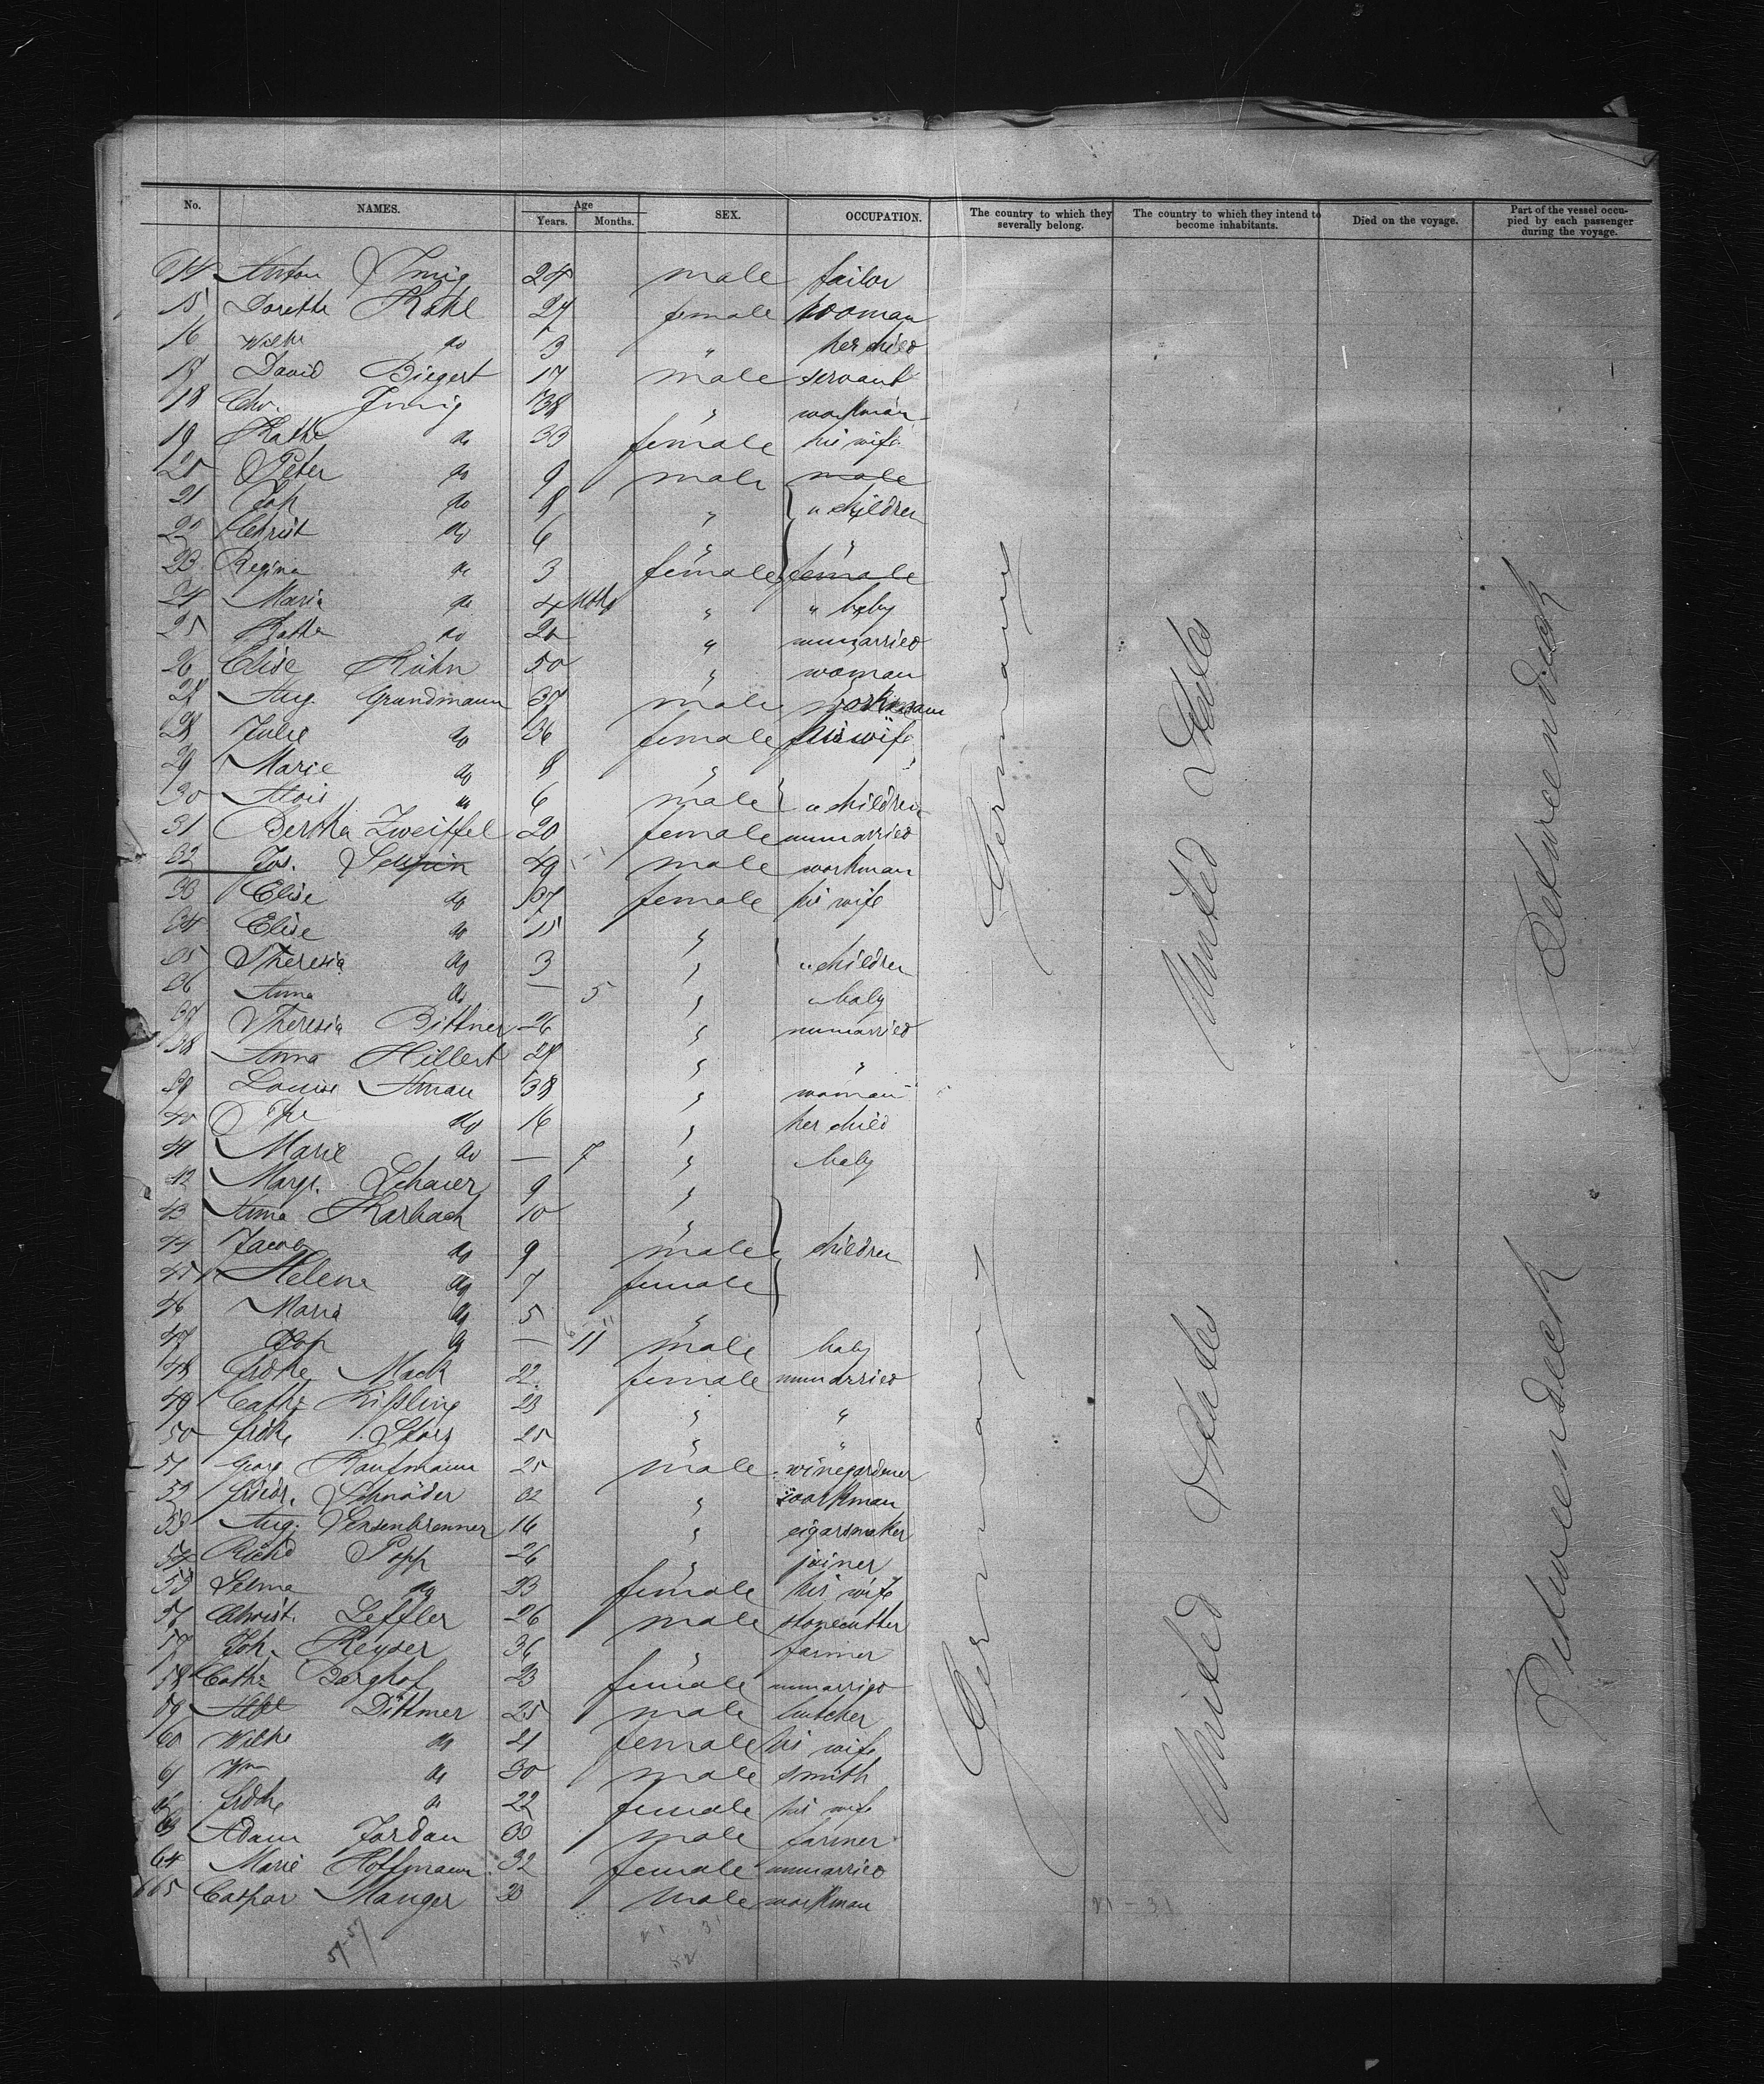 No. NAMES. Age Years. Months. SEX. OCCUPATION. The country to which they severally belong. The country to which they intend to become inhabitants. Died on the voyage. Part of the vessel occupied by each passenger during the voyage.
14 Anton 24 male tailor
15 Dorette Kahl 27 female woman
16 Wilhe do 3 " her child
17 David Biegert 17 male servant
18 Chr. 38 " workman
19 Kathe do 33 female his wife
20 Peter do 9 male male
21 Joh do 8 " " children
22 Christ do 6 " "
23 Regina do 3 female female
24 Maria do 4 Mths " " baby
25 Kathe do 20 " unmarried
26 Elise Kuhn 50 " woman
27 Aug. Grundmann 37 male workman
28 Julie do 36 female his wife
29 Marie do 8 "
30 Alois do 6 male " children
31 Bertha Zweiffel 20 female unmarried
32 Jos. 49 male workman
33 Elise do 37 female his wife
34 Elise do 15 "
35 Theresia do 3 " " children
36 Anna do — 5 " baby
37 Theresia Bittner 26 " unmarried
38 Anna Hillert 27 " "
39 Louise Aman 38 " woman
40 do 16 " her child
41 Marie do — 7 " baby
42 Margr. Schauer 9 "
43 Anna Karbach 10 "
44 Jacob do 9 male children
45 Helena do 7 female
46 Maria do 5 "
47 Jos do — 11 male baby
48 Fridke Mack 22 female unmarried
49 Cathr Kißling 23 " "
50 Fridke Storz 25 " "
51 Georg Kaufmann 25 male winegardener
52 Friedr. Schnäder 32 " workman
53 Aug. Sensenbrenner 16 " cigarsmaker
54 Richd Popp 26 " joiner
55 Selma do 23 female his wife
56 Christ. Leffler 26 male stonecutter
57 Joh. Keyser 36 " farmer
58 Cathr Berghof 23 female unmarried
59 Albt Dittmer 25 male butcher
60 Wilhe do 21 female his wife
61 Wm do 30 male smith
62 Fridke do 22 female his wife
63 Adam Jordan 30 male farmer
64 Marie Hoffmann 32 female unmarried
65 Caspar Manger 20 male workman
Germany
United States
Betweendeck
Germany
United States
Betweendeck